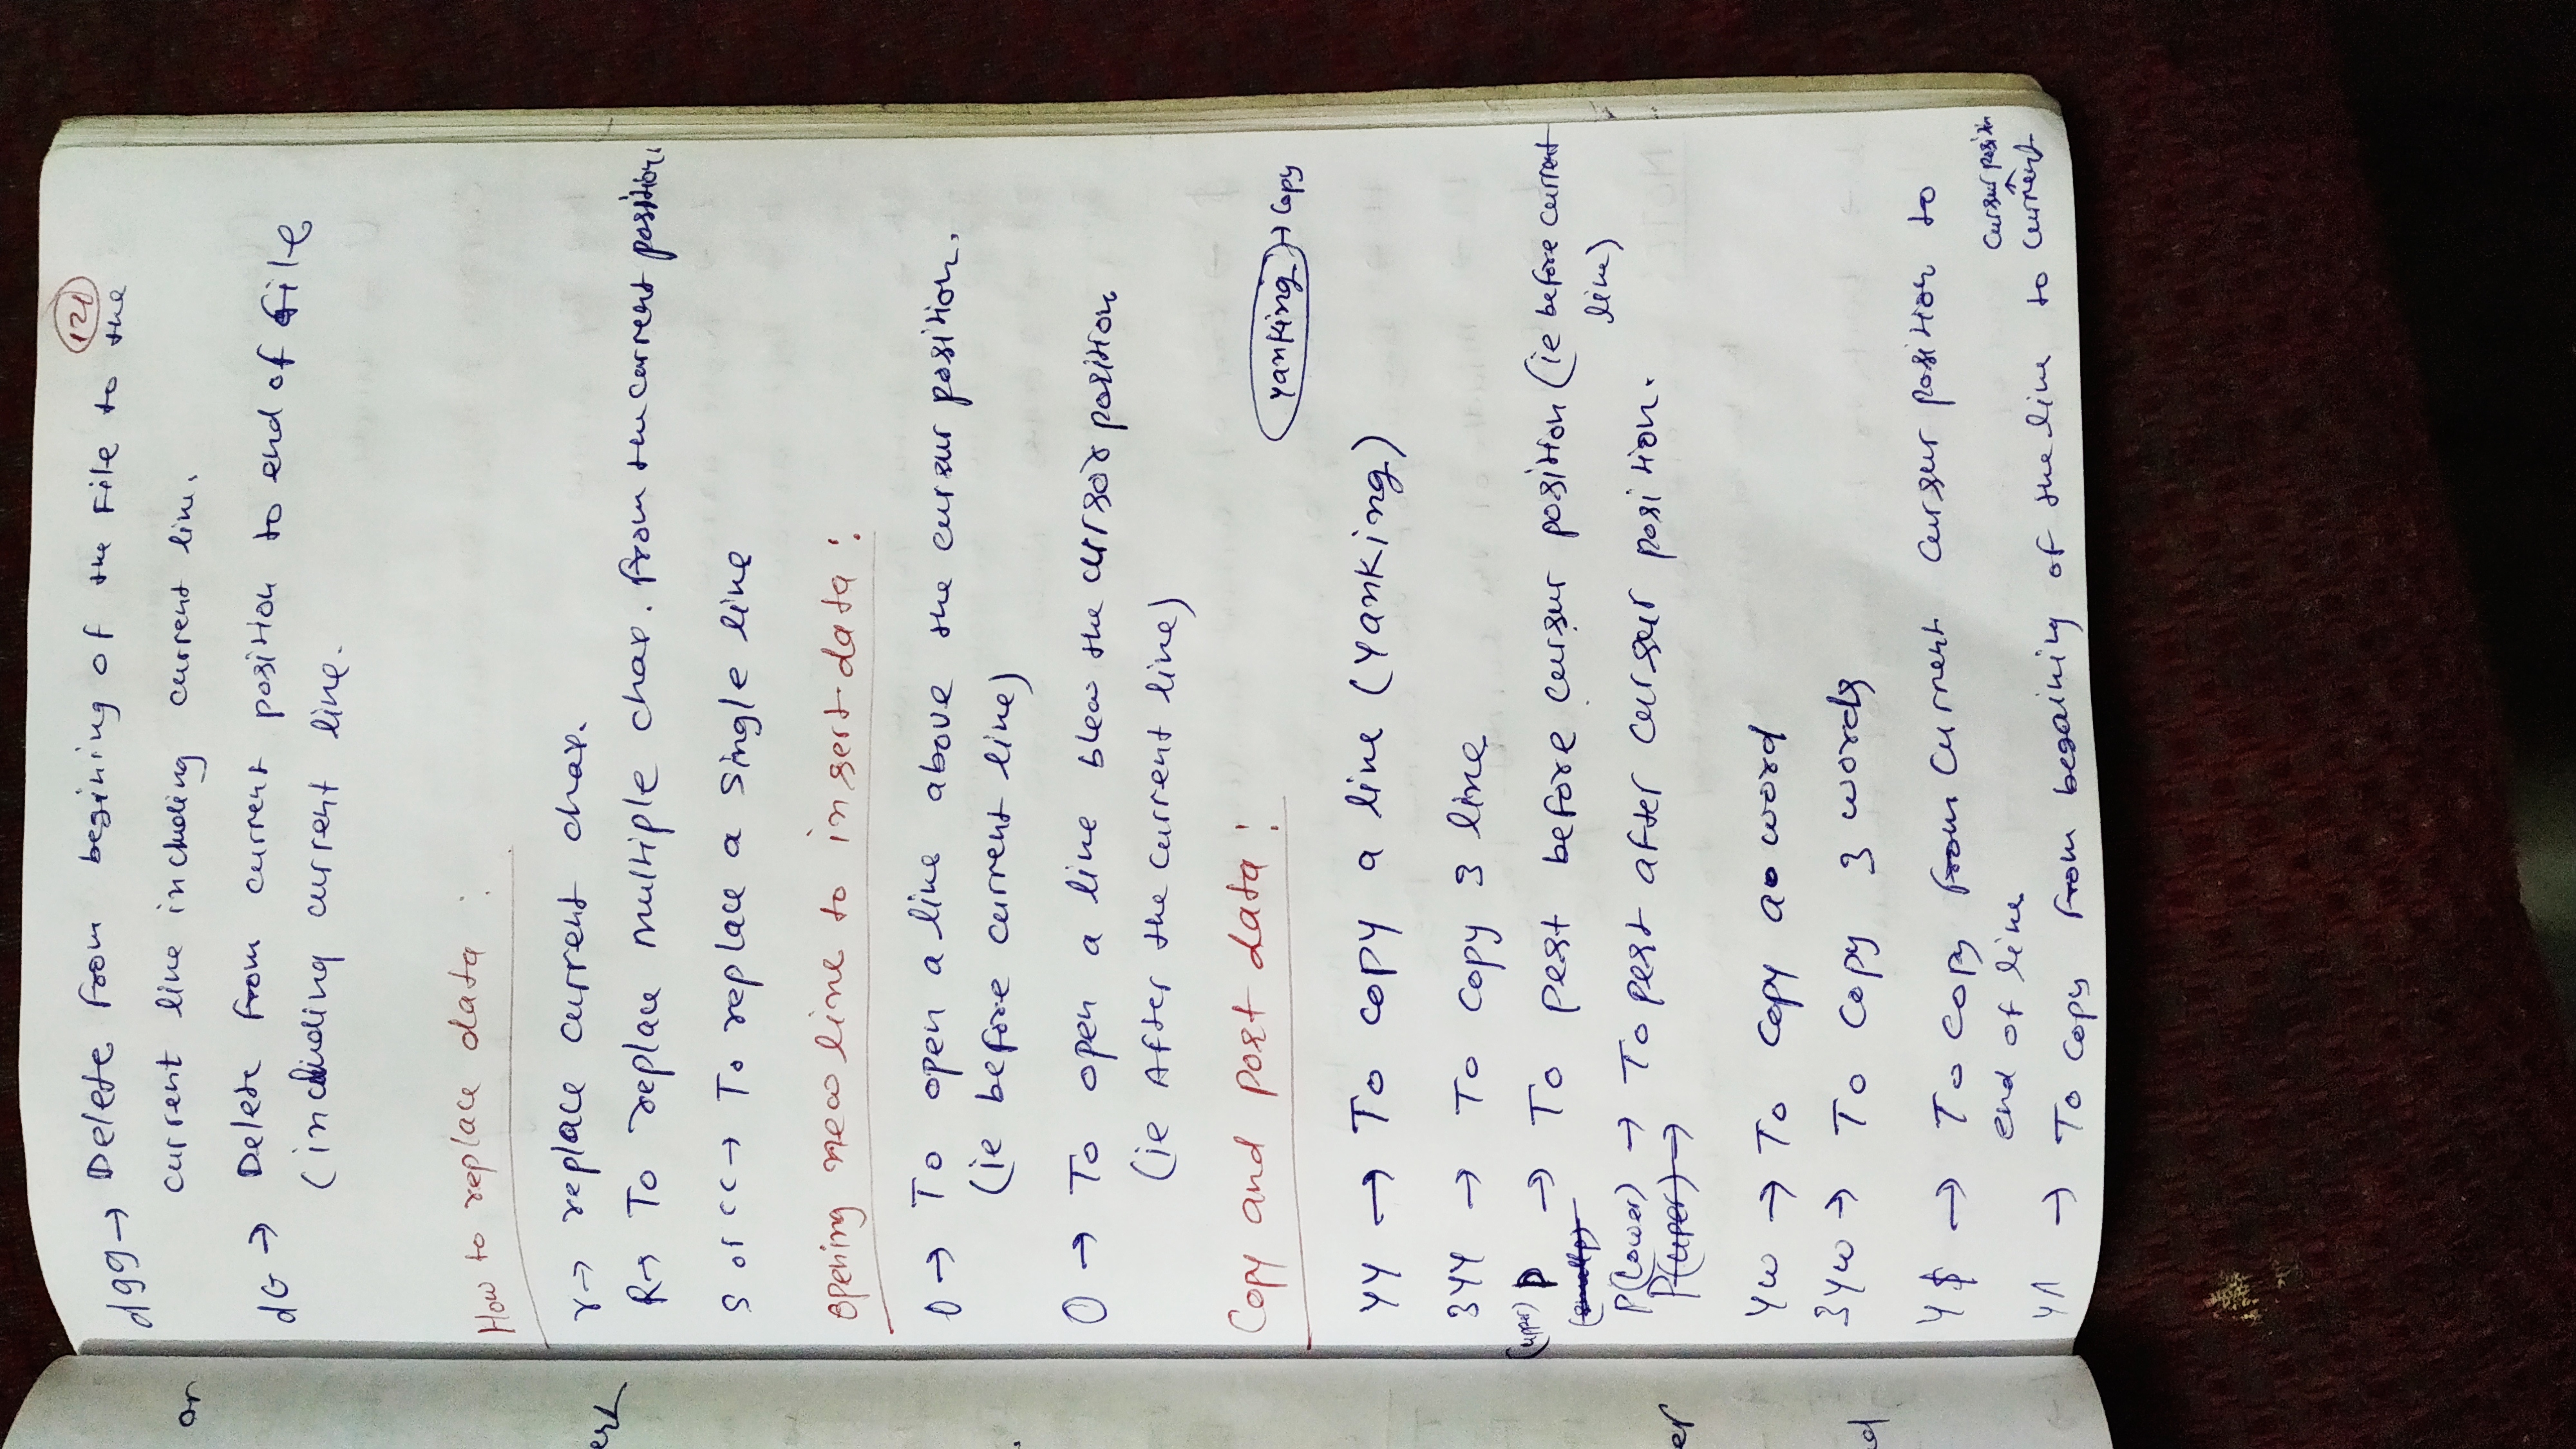 121
dgg → Delete from begining of the File to the
current line including current line.
dG → Delete from current position to end of file
(including current line.
How to replace data :
r → replace current char.
R → To replace multiple char. from the current position.
S or cc → To replace a single line
opening new line to insert data :
O → To open a line above the cursur position.
(ie before current line)
O → To open a line blew the cursor position
(ie After the current line)
Copy and past data :
yanking → Copy
yy → To copy a line (Yanking)
3yy → To copy 3 line
(upper) P → To pest before cursur position (ie before current
line)
(small p)
P(lower) → To pest after cursur position.
P(uper) →
yw → To copy a word
3yw → To copy 3 words
y$ → To copy from Current cursur position to
end of line
cursur positin
y^ → To copy from begaining of the line to current
or
er